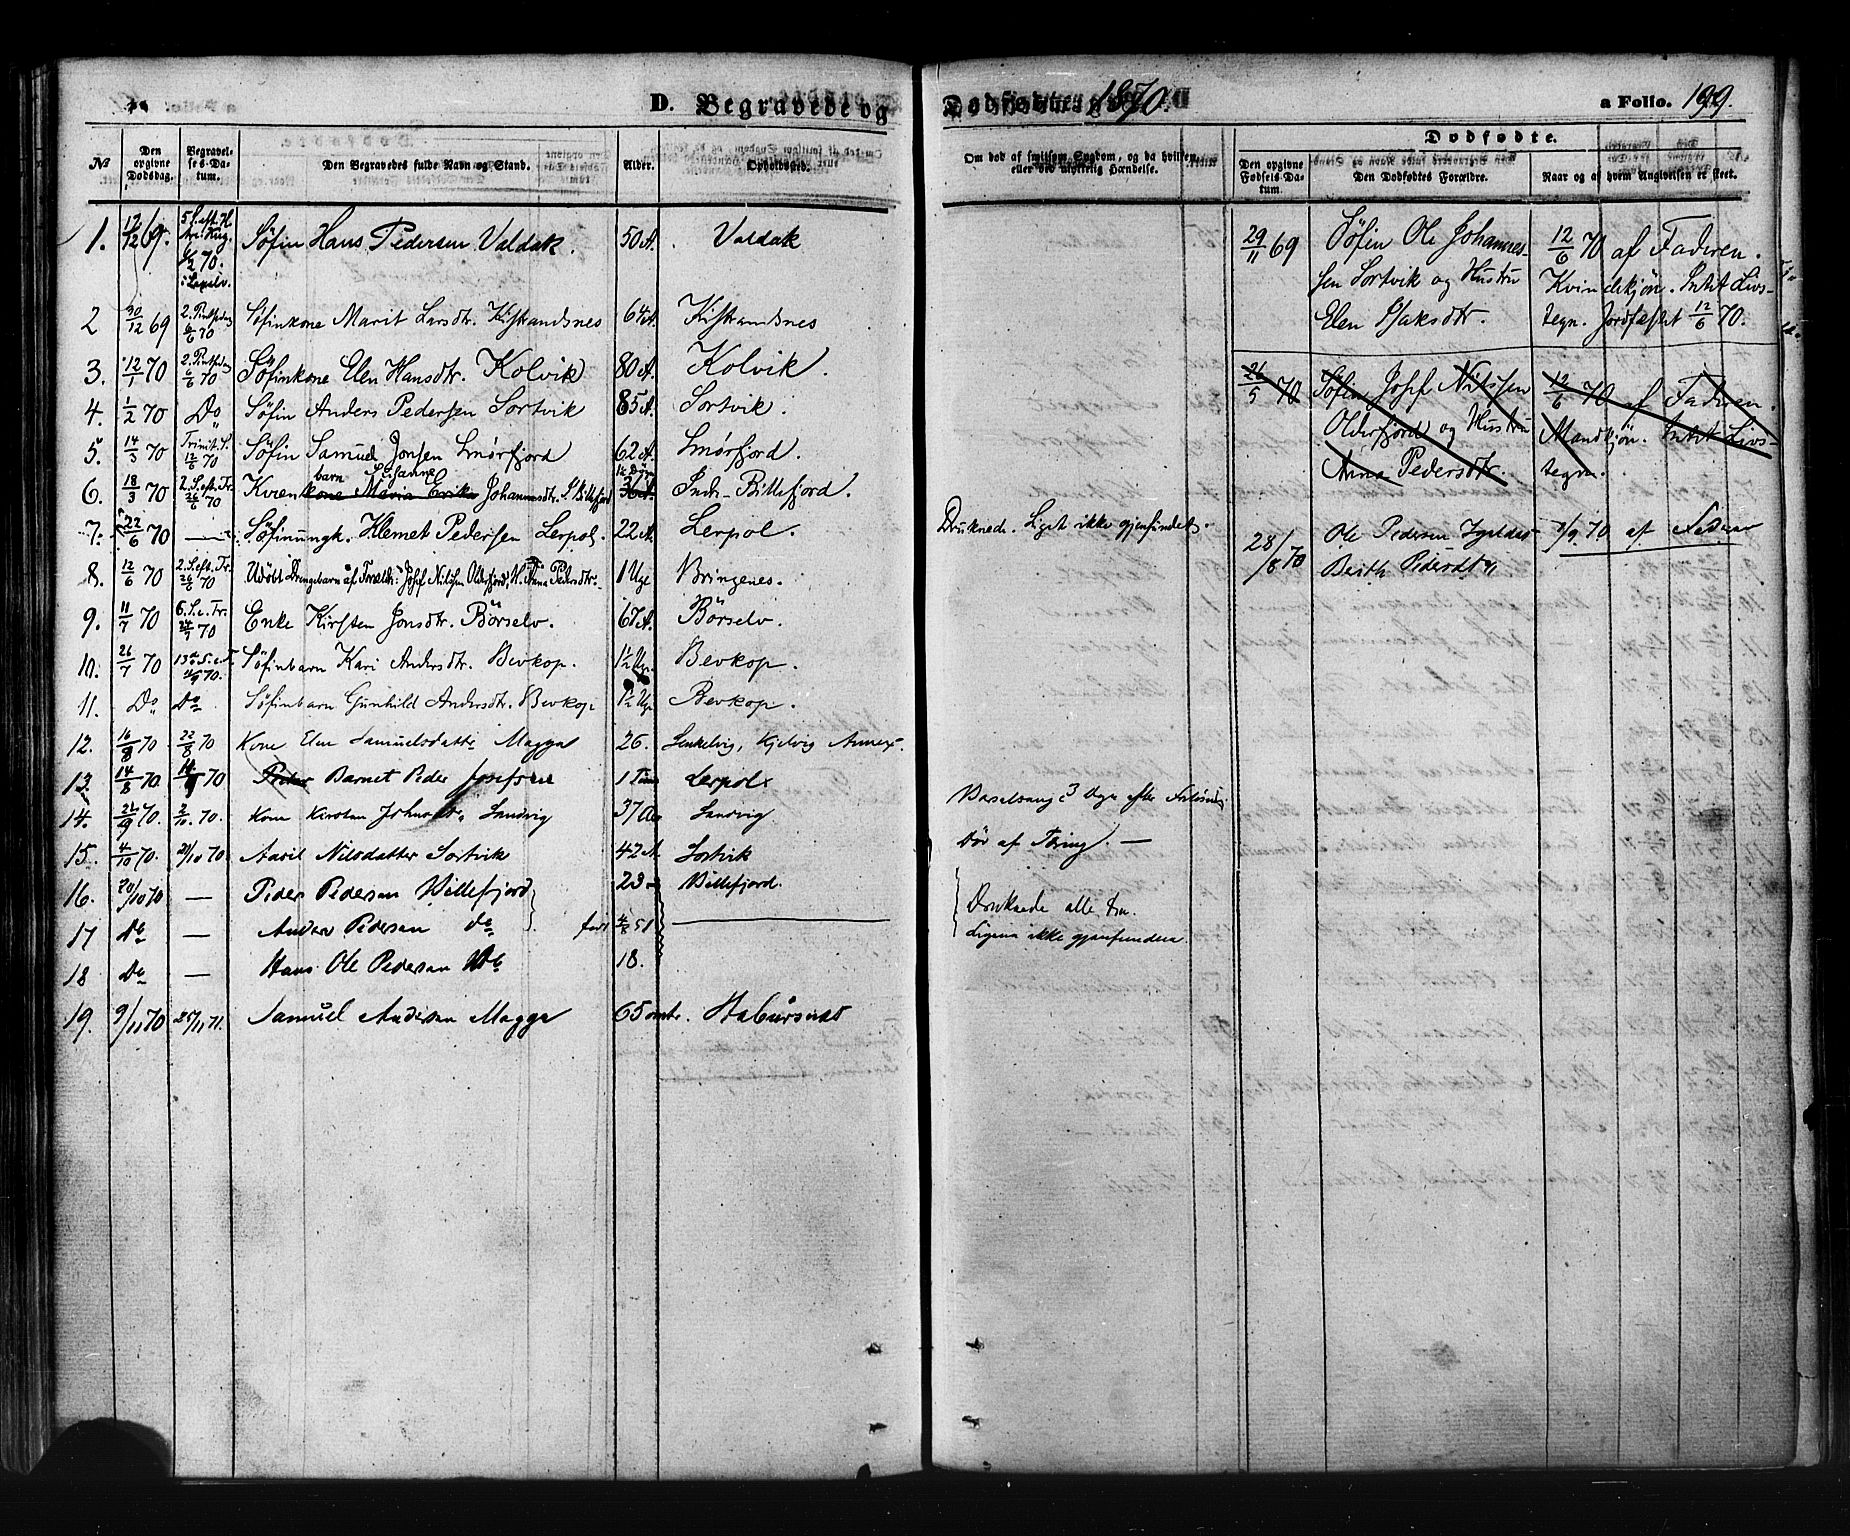 D. Begravede og Dødfødte. 1870. a Folio. 199.
No
Den opgivne Dødsdag.
Begravelses-Datum.
Den Begravedes fulde Navn og Stand.
Alder.
Opholdssted.
Om død af smitsom Sygdom, og da hvilken, eller ved ulykkelig Hændelse.
Dødfødte.
Den opgivne Fødsels-Datum.
Den Dødfødtes Forældre.
Naar og af hvem Angivelsen er skeet.
1. 12/12 69. 6/2 70. i Laxelv. Søfin Hans Pedersen Valdak. 50 A. Valdak
2 30/12 69 2. Pintsedag 6/6 70 Søfinkone Marit Larsdtr. Kistrandsnes 64 A. Kistrandsnes
3. 12/1 70 2. Pintsedag 6/6 70 Søfinkone Elen Hansdtr. Kolvik 80 A. Kolvik.
4. 1/2 70 Do Søfin Anders Pedersen Sortvik 85 A. Sortvik.
5. 14/3 70 Trinit. S. 12/6 70 Søfin Samuel Jonsen Smørfjord 62 A. Smørfjord.
6. 18/3 70 2. S. eft. Tr. 26/6 70 Kvenkone barn Maria Erika Susanne Johannesdtr. Billefjord 36 A. Indr-Billefjord.
7. 22/6 70 — Søfinungk. Klemet Pedersen Lerpol. 22 A. Lerpol. Druknede. Liget ikke gjenfundet.
8. 12/6 70 2. S. eft. Tr. 26/6 70 Udøbt Drengebarn af Forældr: Josef Nilssen Olderfjord, H. Anna Pedersdtr. 1 Uge Bringenes.
9. 11/7 70 6. S. e. Tr. 24/7 70 Enke Kirsten Jonsdtr. Børselv. 67 A. Børselv.
10. 26/7 70 13de S. e. T. 11/9 70. Søfinbarn Kari Andersdtr. Bevkop. 1½ Uge Bevkop.
11. Do Do Søfinbarn Gunhild Andersdtr. Bevkop. 1½ Uge Bevkop.
12. 16/8 70 22/8 70 Kone Elen Samuelsdatter Magga 26. Kjelvig Annex.
13. 14/8 70. 70 Peder Barnet Peder Josefsen 1 Lerpol
14. 26/9 70. 2/10. 70. Kone Kirsten Johnsdtr. Sandvig 37 Aar Sandvig Barselseng 3 Uger efter
15. 4/10 70. 70. Nilsdatter Sortvik 42 A Sortvik Dør af Tæring. —
16. 20/10 70 — Peder Pedersen Billefjord 23 Billefjord.
17 Do — Anders Pedersen do født 4/8 51 Druknede alle tre.
Ligene ikke gjenfundne.
18 Do — Hans Ole Pedersen Do 18.
19. 9/11 70 25/11 71. Samuel Andersen Magga 65 omtr.
29/11 69 Søfin Ole Johannes- 12/6 70 af Faderen.
sen Sortvik og Hustru Kvindekjøn. Intet Livs-
Elen Isaksdtr. tegn. Jordfæstet 12/6 70.
26/5 70 Søfin Josef Nilssen 12/6 70 af Faderen.
Olderfjord og Hustru Mandkjøn. Intet Livs-
Anna Pedersdtr. tegn.
28/8 70 Ole Pedersen 70 af Faderen
Berith Pedersdtr